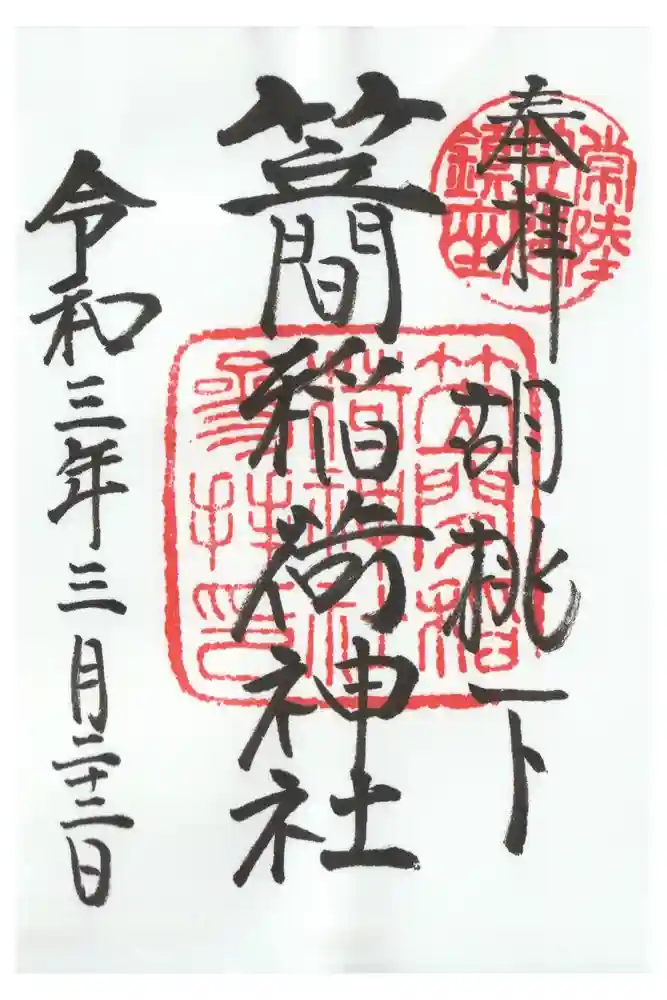 奉拝 胡桃下
常陸
笠間
鎮座
笠間稲荷神社
笠間稲
荷神社
参拝印
令和三年三月二十二日